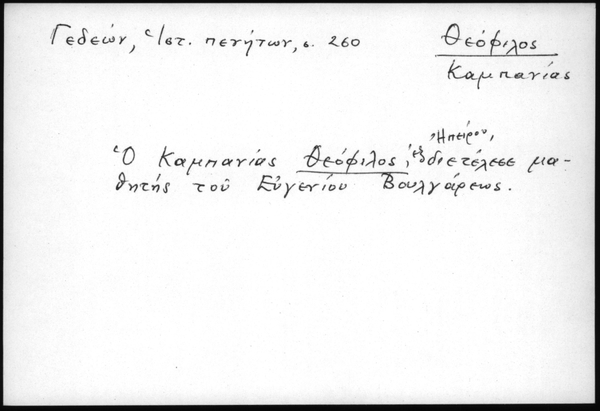 Γεδεών, Ἱστ. πενήτων, σ. 260
Θεόφιλος
Καμπανίας
Ὁ Καμπανίας Θεόφιλος, ἐξ Ἠπείρου, διετέλεσε μα-
θητής τοῦ Εὐγενίου Βουλγάρεως.